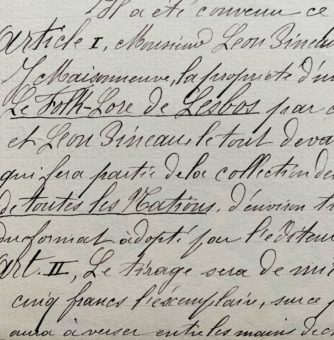 Il a été convenu ce
Article I, Monsieur Léon Pineau
J. Maisonneuve, la propriété d'un
Le Folk-Lore de Lesbos par
et Léon Pineau, le tout deva
qui fera partie de la collection des
de toutes les Nations, d'environ
du format adopté par l'éditeur
Art. II, Le tirage sera de mi
cinq francs l'exemplaire, sur ce
aura à verser entre les mains de